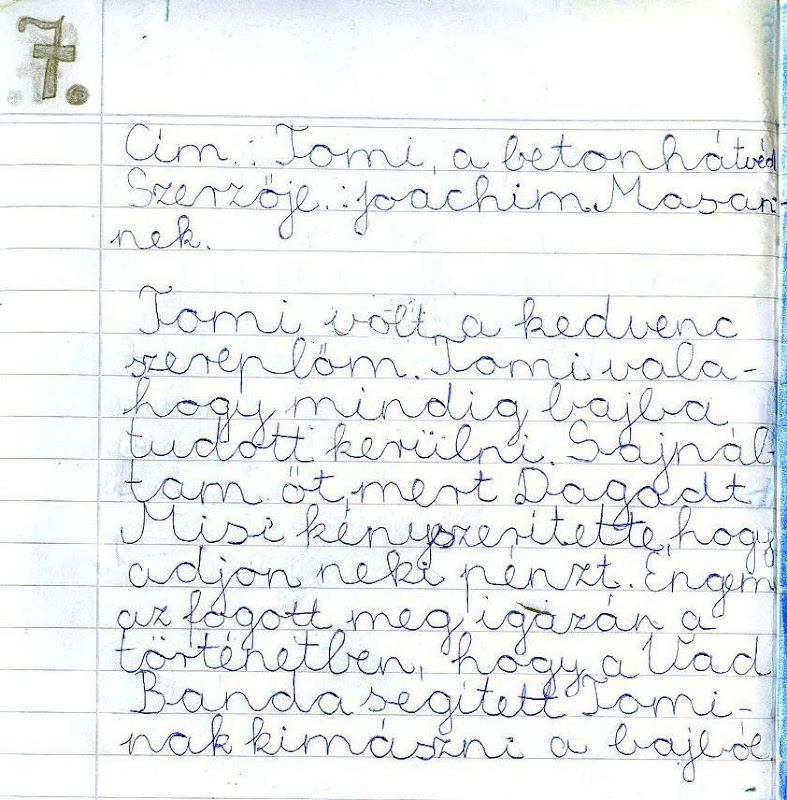 7.
Cím.: Tomi, a betonhátvéd
Szerzője.: Joachim Masan-
nek.
Tomi volt a kedvenc
szereplőm. Tomi vala-
hogy mindig bajba
tudott kerülni. Sajnál-
tam őt, mert Dagadt
Misi kényszerítette, hogy
adjon neki pénzt. Engem
az fogott meg igazán a
történetben, hogy a Vad
Banda segített Tomi-
nak kimászni a bajból.